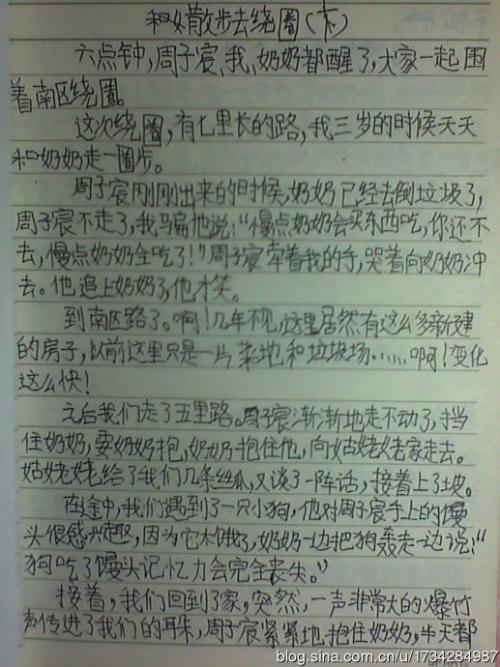 和奶散步去绕圈(下)
六点钟,周子宸、我、奶奶都醒了,大家一起围
着南区绕圈。
这次绕圈,有七里长的路,我三岁的时候天天
和奶奶走一圈步。
周子宸刚刚出来的时候,奶奶已经去倒垃圾了,
周子宸不走了,我骗他说:“慢点奶奶会买东西吃,你还不
去,慢点奶奶全吃了!”周子宸牵着我的手,哭着向奶奶冲
去。他追上奶奶了,他才笑。
到南区路了。啊!几年不见,这里居然有这么多新建
的房子,以前这里只是一片菜地和垃圾场……啊!变化
这么快!
之后我们走了五里路。周子宸渐渐地走不动了,挡
住奶奶,要奶奶抱,奶奶抱住他,向姑姥姥家走去。
姑姥姥给了我们几条丝瓜,又谈了一阵话,接着上了坡。
在途中,我们遇到了一只小狗,他对周子宸手上的馒
头很感兴趣,因为它太饿了,奶奶一边把狗轰走一边说:“
狗吃了馒头记忆力会完全丧失。”
接着,我们回到了家,突然,一声非常大的爆竹
声传进了我们的耳朵,周子宸紧紧地抱住奶奶,半天都
blog.sina.com.cn/u/1734284987